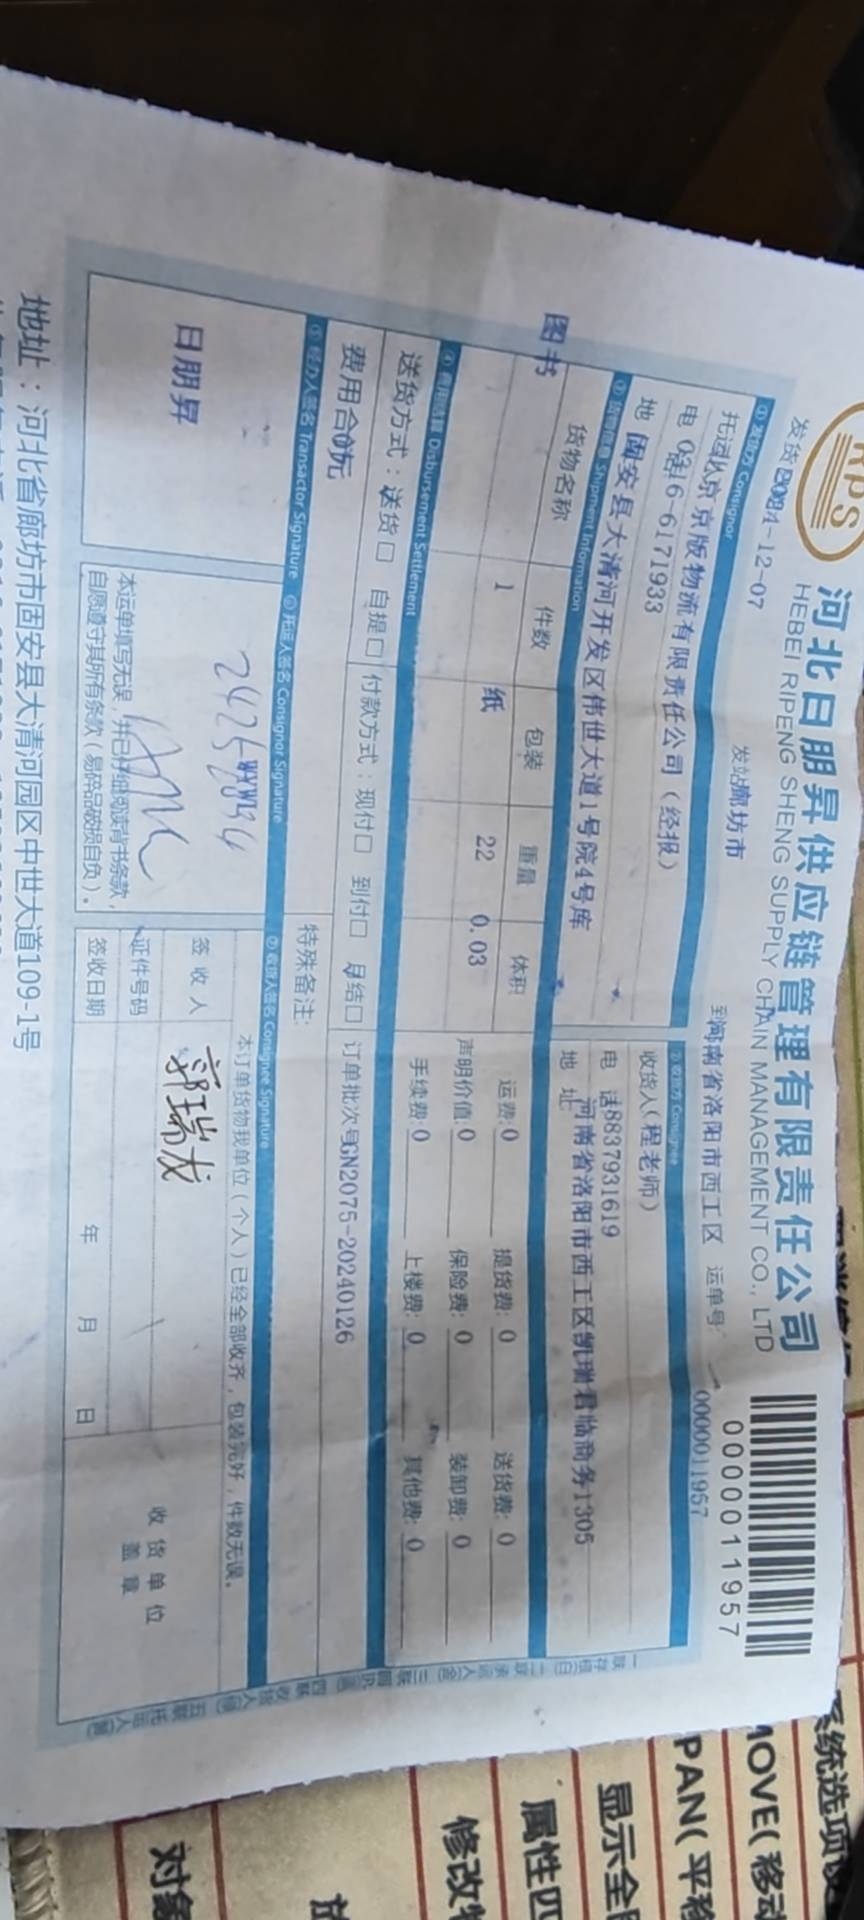 RPS
河北日朋昇供应链管理有限责任公司
HEBEI RIPENG SHENG SUPPLY CHAIN MANAGEMENT CO., LTD
0000011957
发货 2024-12-07 发站廊坊市 到河南省洛阳市西工区 运单号: 0000011957
① 发货方 Consignor
② 收货方 Consignee
托运 北京京版物流有限责任公司(经报)
收货人(程老师)
电 话 0316-6171933
电 话 18837931619
地 固安县大清河开发区伟世大道1号院4号库
地 址 河南省洛阳市西工区凯瑞君临商务1305
③ 货物信息 Shipment Information
货物名称 件数 包装 重量 体积
图书 1 纸 22 0.03
运费: 0 提货费: 0 送货费: 0
声明价值: 0 保险费: 0 装卸费: 0
手续费: 0 上楼费: 0 其他费: 0
④ 费用结算 Disbursement Settlement
送货方式:送货□ 自提□ 付款方式:现付□ 到付□ 月结□ 订单批次号GN2075-20240126
费用合 0元
特殊备注:
⑤ 经办人签名 Transactor Signature ⑥ 托运人签名 Consignor Signature ⑦ 收货人签名 Consignee Signature
日朋昇
本运单填写无误,并已详细阅读背书条款,
自愿遵守其所有条款(易碎品破损自负)。
本订单货物我单位(个人)已经全部收齐,包装完好,件数无误。
签 收 人 郭瑞龙
证件号码
签收日期 年 月 日
收 货 单 位
盖 章
地址:河北省廊坊市固安县大清河园区中世大道109-1号
MOVE(移动
PAN(平移
显示全
属性匹
修改
放
对象